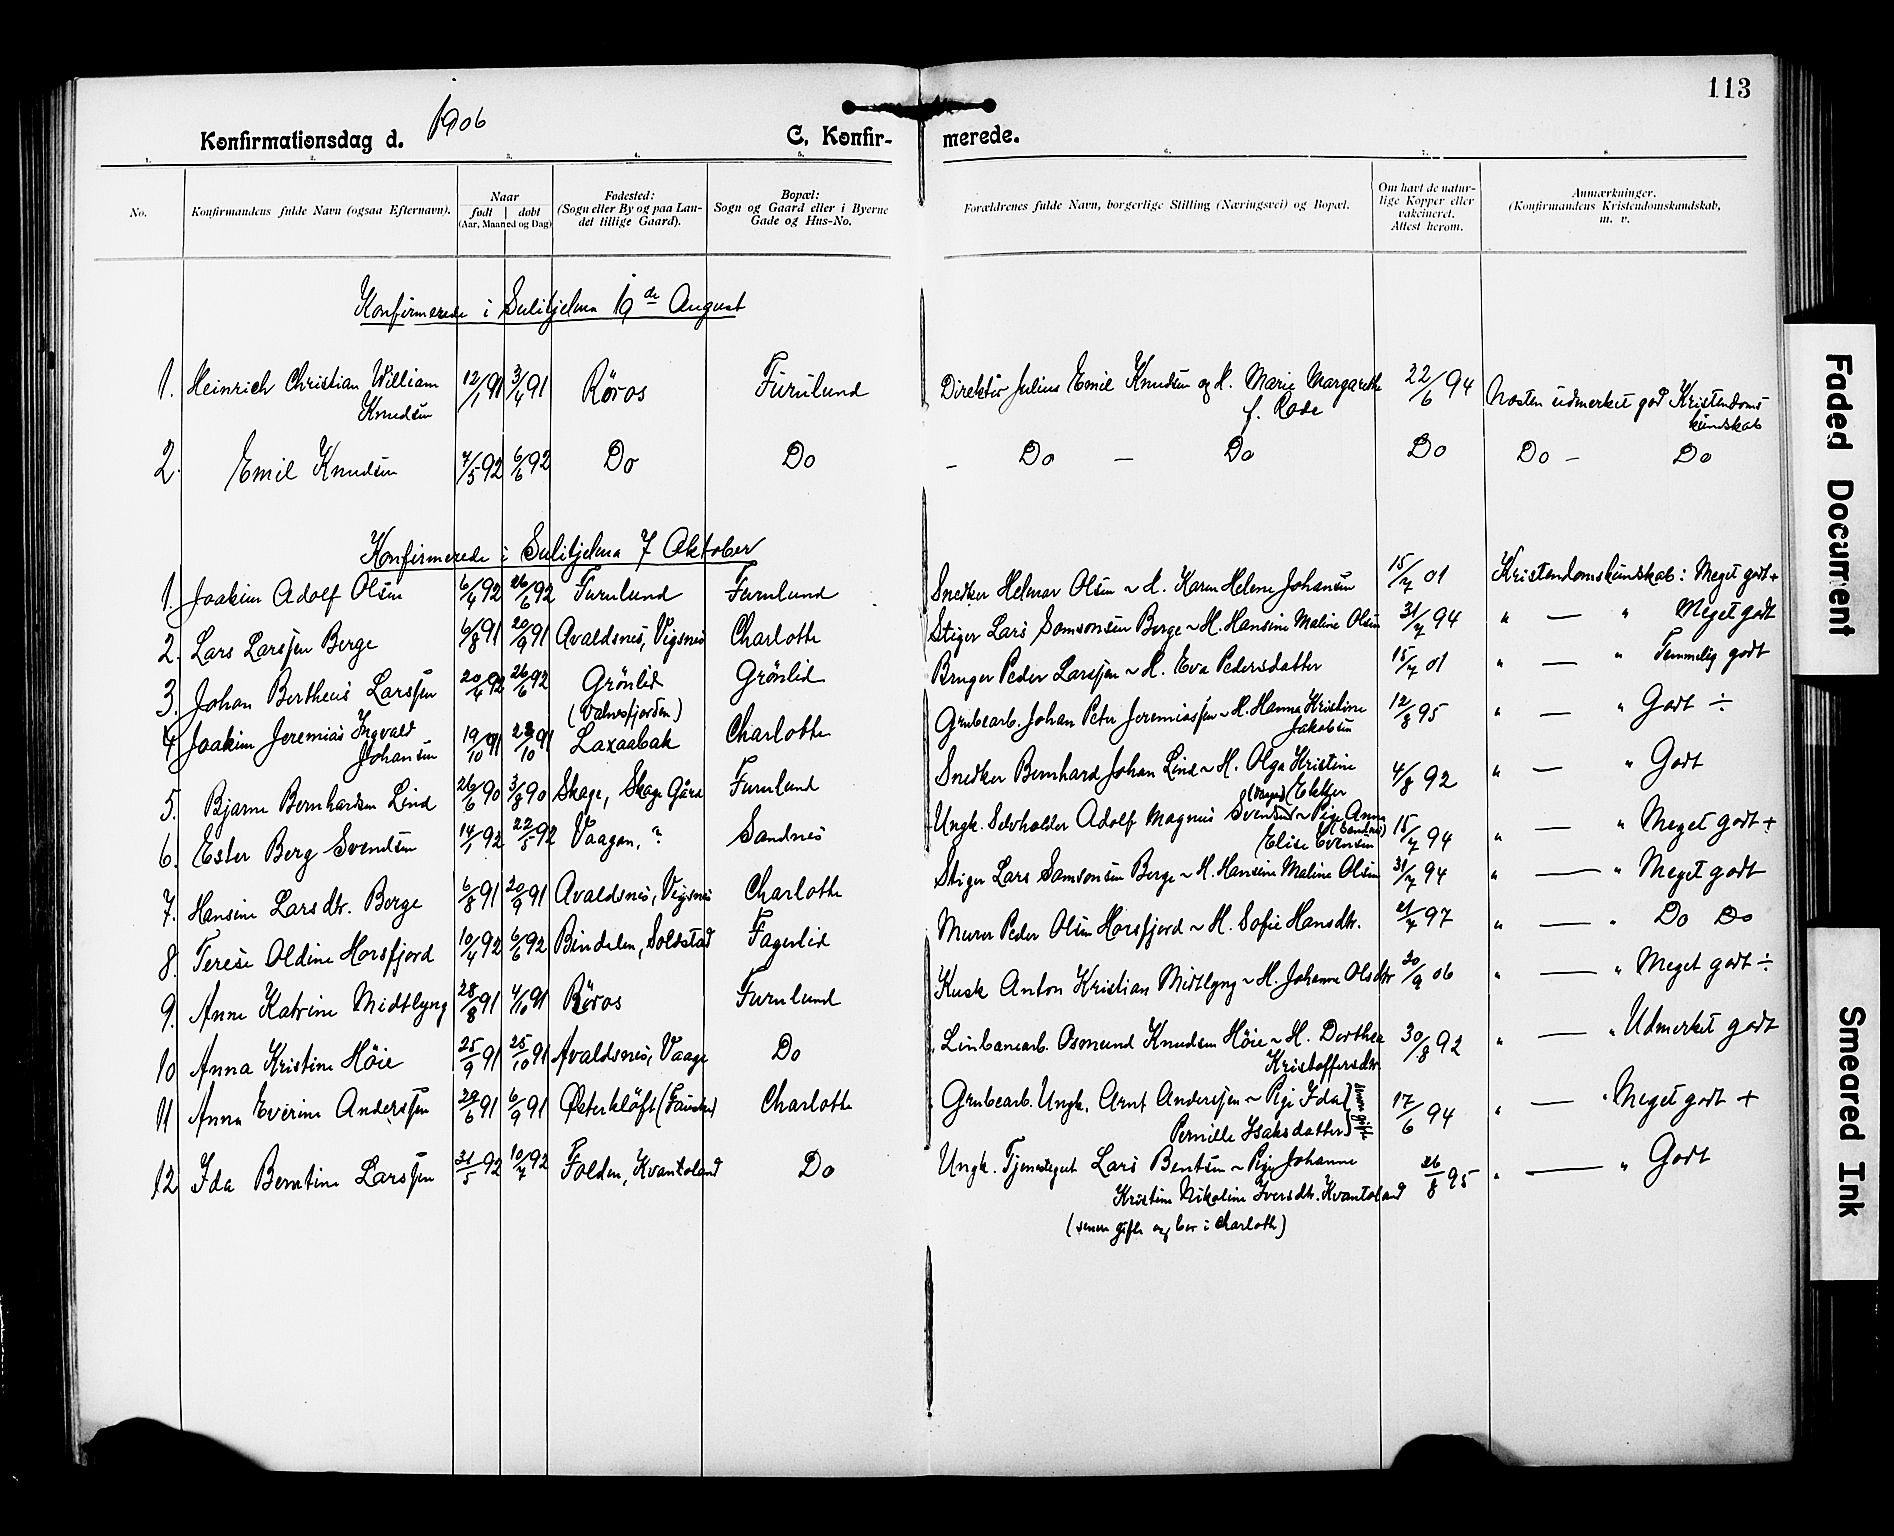 113
Konfirmationsdag d. 1906 C. Konfir- merede.
1. 2. 3. 4. 5. 6. 7. 8.
No.
Konfirmandens fulde Navn (ogsaa Efternavn).
Naar
født | døbt
(Aar, Maaned og Dag)
Fødested:
(Sogn eller By og paa Lan-
det tillige Gaard).
Bopæl:
Sogn og Gaard eller i Byerne
Gade og Hus-No.
Forældrenes fulde Navn, borgerlige Stilling (Næringsvei) og Bopæl.
Om havt de natur-
lige Kopper eller
vakcineret.
Attest herom.
Anmærkninger.
(Konfirmandens Kristendomskundskab,
m. v.
Konfirmerede i Sulitjelma 16de August
1. Heinrich Christian William Knudsen 12/1 91 3/4 91 Röros Furulund Direktör Julius Emil Knudsen og H. Marie Margarethe f. Rode 22/6 94 Næsten udmerket god Kristendoms kundskab
2. Emil Knudsen 7/5 92 6/6 92 Do Do – Do – Do Do Do – Do
Konfirmerede i Sulitjelma 7 Oktober
1. Joakim Adolf Olsen 6/4 92 26/6 92 Furulund Furulund Snedker Helmar Olsen ~ H. Karen Helene Johansen 15/7 01 Kristendomskundskab: Meget godt +
2. Lars Larssen Berge 6/8 91 20/9 91 Avaldsnes, Vigsnes Charlotte Stiger Lars Samsonsen Berge ~ H. Hansine Maline Olsen 31/7 94 " — " Meget godt
3. Johan Bertheus Larssen 20/4 92 26/6 92 Grönlid Grönlid Bruger Peder Larssen ~ H. Eva Pedersdatter 15/7 01 " — " Temmelig godt
4 Joakim Jeremias Ingvald Johansen 19/10 91 /10 91 (Valnesfjorden) Laxaabak Charlotte Grubearb. Johan Peter Jeremiassen ~ H. Hanna Kristine Jakobsen 12/8 95 " — " Godt ÷
5. Bjarne Bernhardsen Lind 26/6 90 3/8 90 Skage, Skage Gård Furulund Snedker Bernhard Johan Lind ~ H. Olga Kristine Ekker 4/8 92 " — " Godt
6. Ester Berg Svendsen 14/1 92 22/5 92 Vaagan, ? Sandnes Ungk. Selvholder Adolf Magnus Svendsen ~ Pige Anna Elise Evensen (Sandnes) 15/7 94 " — " Meget godt +
7. Hansine Larsdtr. Berge 6/8 91 20/9 91 Avaldsnes, Vigsnes Charlotte Stiger Lars Samsonsen Berge ~ H. Hansine Maline Olsen 31/7 94 " — " Meget godt
8. Terese Oldine Horsfjord 10/4 92 6/6 92 Bindalen, Solstad Fagerlid Murer Peder Olsen Horsfjord ~ H. Sofie Hansdtr. 21/7 97 " — " Do Do
9. Anne Katrine Midtlyng 28/8 91 4/10 91 Röros Furulund Kusk Anton Kristian Midtlyng ~ H. Johanne Olsdtr 20/9 06 " — " Meget godt ÷
10 Anna Kristine Höie 25/9 91 25/10 91 Avaldsnes, Vaage Do Linbanearb. Osmund Knudsen Höie ~ H. Dorthea Kristoffersdtr. 30/8 92 " — " Udmerket godt
11 Anna Everine Anderssen 29/6 91 6/9 91 Østerklöft (Fauske) Charlotte Grubearb. Ungk. Arnt Anderssen ~ Pige Ida Pernille Isaksdatter gift 17/6 94 " — " Meget godt +
12 Ida Berntine Larssen 31/5 92 10/7 92 Folden, Kvantoland Do Ungk. Tjenestegut Lars Bentsen ~ Pige Johanne Kristine Nikoline Iversdtr. Kvantoland 26/8 95 " — " Godt
(senere gifte og bor i Charlotte)
Faded Document
Smeared Ink